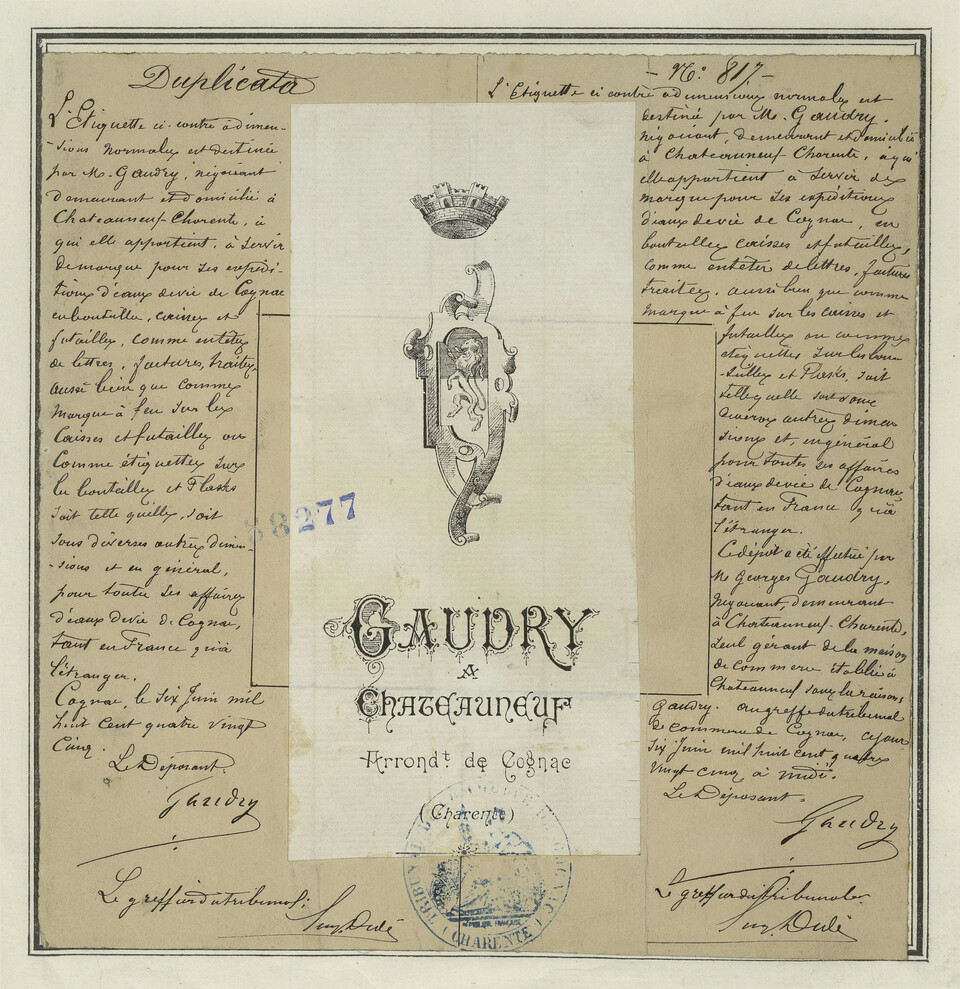 Duplicata
L'Etiquette ci-contre à dimen-
-sions normales est destinée
par M. Gaudry, négociant
demeurant et domicilié à
Chateauneuf-Charente, à
qui elle appartient, à servir
de marque pour ses expédi-
tions d'eaux de vie de Cognac
en bouteilles, caisses et
futailles, comme entêtes
de lettres, factures, traites,
aussi bien que comme
marque à feu sur les
caisses et futailles ou
comme étiquettes sur
les bouteilles et Flasks
soit telle quelle, soit
sous diverses autres dimen-
-sions et en général,
pour toutes ses affaires
d'eaux de vie de Cognac,
tant en France qu'à
l'étranger.
Cognac, le six Juin mil
huit cent quatre vingt
cinq.
Le Déposant.
Gaudry
Le greffier du tribunal:
58277
GAUDRY
A
CHATEAUNEUF
Arrondt de Cognac
(Charente)
TRIBUNAL DE COMMERCE DE COGNAC
REPUBLIQUE FRANÇAISE
(CHARENTE)
- No. 817. -
L'Etiquette ci contre à dimensions normales est
destinée par M. Gaudry.
négociant, demeurant et domicilié
à Chateauneuf-Charente, à qui
elle appartient à servir de
marque pour ses expéditions
d'eaux de vie de Cognac, en
bouteilles caisses et futailles,
comme entêtes de lettres, factures
traites, aussi bien que comme
marque à feu sur les caisses et
futailles ou comme
étiquettes sur les bou-
-teilles et Flasks, soit
telle quelle soit sous
diverses autres dimen
sions et, en général
pour toutes ses affaires
d'eaux de vie de Cognac,
tant en France qu'à
l'étranger.
Ce dépôt a été effectué par
M. Georges Gaudry,
négociant, demeurant
à Chateauneuf-Charente,
seul gérant de la maison
de commerce établie à
Chateauneuf sous la raison,
Gaudry. au greffe du tribunal
de commerce de Cognac, ce jour
six Juin mil huit cent quatre
vingt cinq à midi.
Le Déposant.
Gaudry
Le greffier du Tribunal.